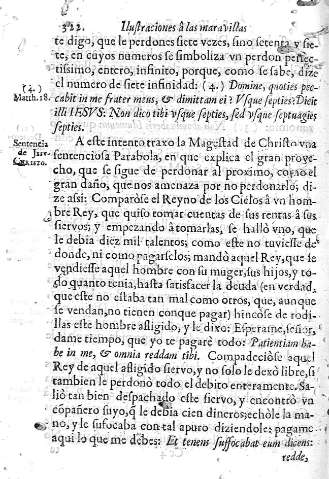 322. Ilustraciones à las maravillas
te digo, que le perdones siete vezes, sino setenta y sie-
te, en cuyos numeros se simboliza vn perdon perfec-
tissimo, entero, infinito, porque, como se sabe, dize
(4.)
Matth. 18.
el numero de siete infinidad: (4.) Domine, quoties pec-
cabit in me frater meus, & dimittam ei? Vsque septies? Dicit
illi IESVS: Non dico tibi vsque septies, sed vsque septuagies
septies.
Sentencia
de
CHRISTO.
A este intento traxo la Magestad de Christo vna
sentenciosa Parabola, en que explica el gran prove-
cho, que se sigue de perdonar al proximo, como el
gran daño, que nos amenaza por no perdonarlo; di-
ze assi: Comparòse el Reyno de los Cielos à vn hom-
bre Rey, que quiso tomar cuentas de sus rentas à sus
siervos; y empezando à tomarlas, se hallò vno, que
le debia diez mil talentos; como este no tuviesse de
donde, ni como pagarselos; mandò aquel Rey, que se
vendiesse aquel hombre con su muger, sus hijos, y to-
do quanto tenia, hasta satisfacer la deuda (en verdad,
que este no estaba tan mal como otros, que, aunque
se vendan, no tienen conque pagar) hincòse de rodi-
llas este hombre afligido, y le dixo: Esperame, señor,
dame tiempo, que yo te pagarè todo: Patientiam ha-
be in me, & omnia reddam tibi. Compadeciòse aquel
Rey de aquel afligido siervo, y no solo le dexò libre, si
tambien le perdonò todo el debito enteramente. Sa-
liò tan bien despachado este siervo, y encontrò vn
cōpañero suyo, q̃ le debia cien dineros; echòle la ma-
no, y le sufocaba con tal apuro diziendole: pagame
aqui lo que me debes: Et tenens suffocabat eum dicens:
redde,